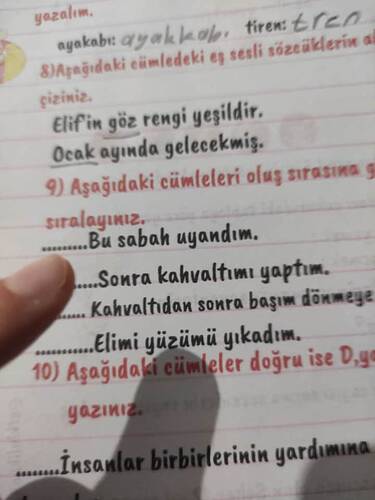 yazalım.
ayakabı: ayakkabı tiren: tren
8)Aşağıdaki cümledeki eş sesli sözcüklerin
çiziniz.
Elif'in göz rengi yeşildir.
Ocak ayında gelecekmiş.
9) Aşağıdaki cümleleri oluş sırasına
sıralayınız.
.........Bu sabah uyandım.
.....Sonra kahvaltımı yaptım.
..... Kahvaltıdan sonra başım dönmeye
...........Elimi yüzümü yıkadım.
10) Aşağıdaki cümleler doğru ise D,
yazınız.
........İnsanlar birbirlerinin yardımına